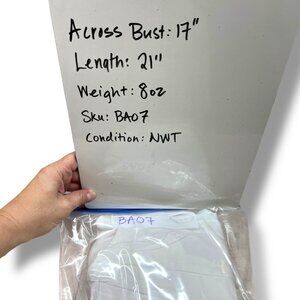 Across Bust: 17"
Length: 21"
Weight: 8oz
Sku: BA07
Condition: NWT
BA07